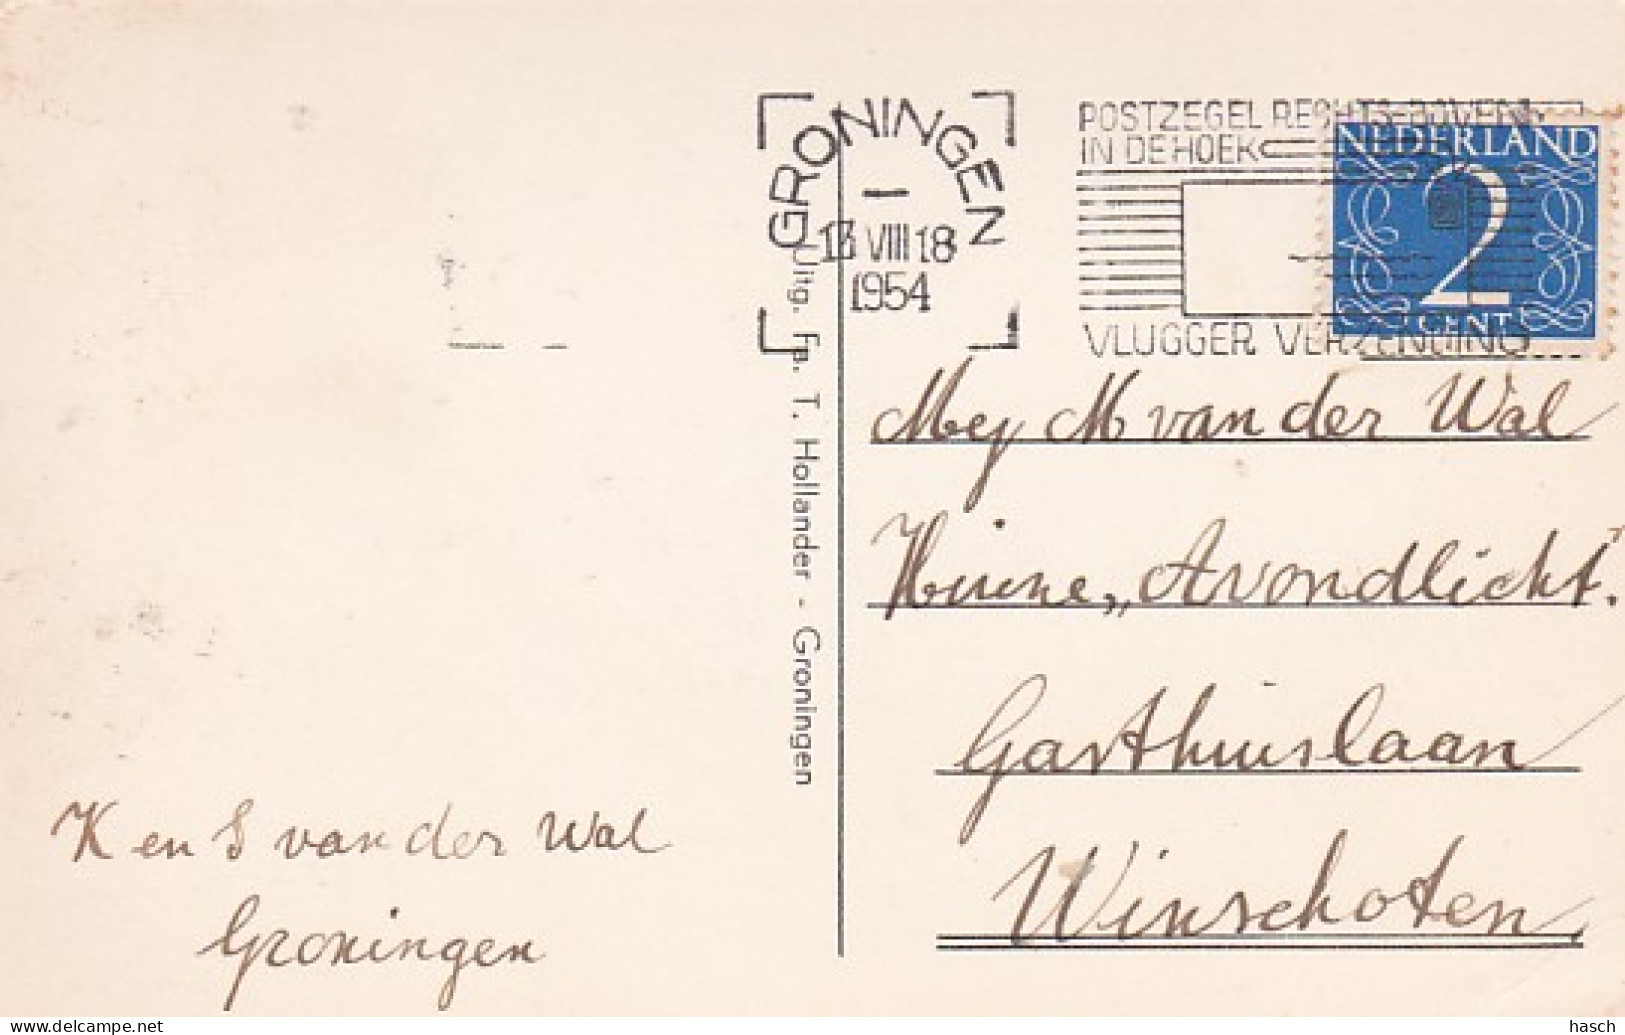 GRONINGEN
13 VIII 18
1954
POSTZEGEL RECHTS-BOVEN
IN DE HOEK
VLUGGER VERZENDING
NEDERLAND
2
CENT
Uitg. Fa. T. Hollander - Groningen
Mej M van der Wal
Huize „Avondlicht"
Gasthuislaan
Winschoten
K en S van der Wal
Groningen
https://www.delcampe.net
hasch